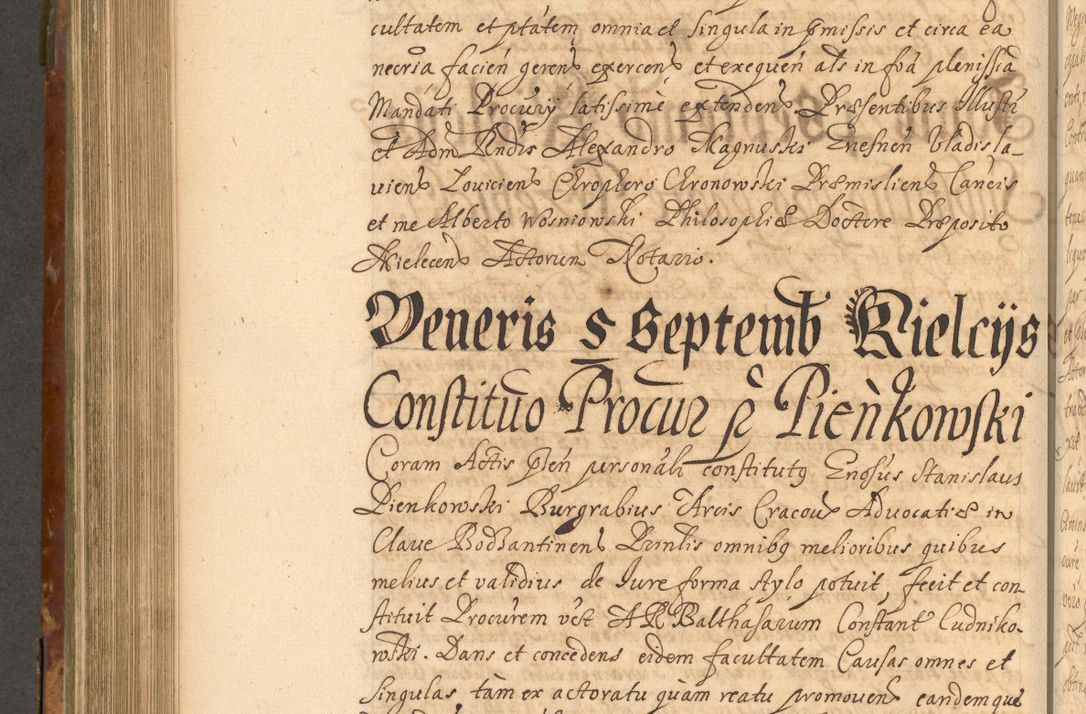 cultatem et ptátem omnia et singula in pmissis et circa ea
necria facień gerens exercens et exequeń als in foá plenissia
Mandati Procurij latissimè extendens Præsentibus Illustri
et Adm Rndis Alexandro Magnuski Gnesnen Vladisla-
viens Loviciens Chrophero Chronowski Præmisliens Cancis
et me Alberto Wosniowski Philosophiæ Doctore Præposito
Mielecens Actorum Notario.
Veneris 5 Septemb Kielcijs
Constituo Procur p Pieńkowski
Coram Actis pseń personali constitutg Gnosus Stanislaus
Pienkowski Burgrabius Arcis Cracovs Advocatiæ in
Clave Bodzantinens Pzintis omnibg melioribus quibus
melius et validius de Iure forma stylo potuit, fecit et con
stituit Procurem vest AR Balthasarum Constant Ludniko-
wski. Dans et concedens eidem facultatem Causas omnes et
singulas tàm ex actoratu quàm reatu promovens eandemque